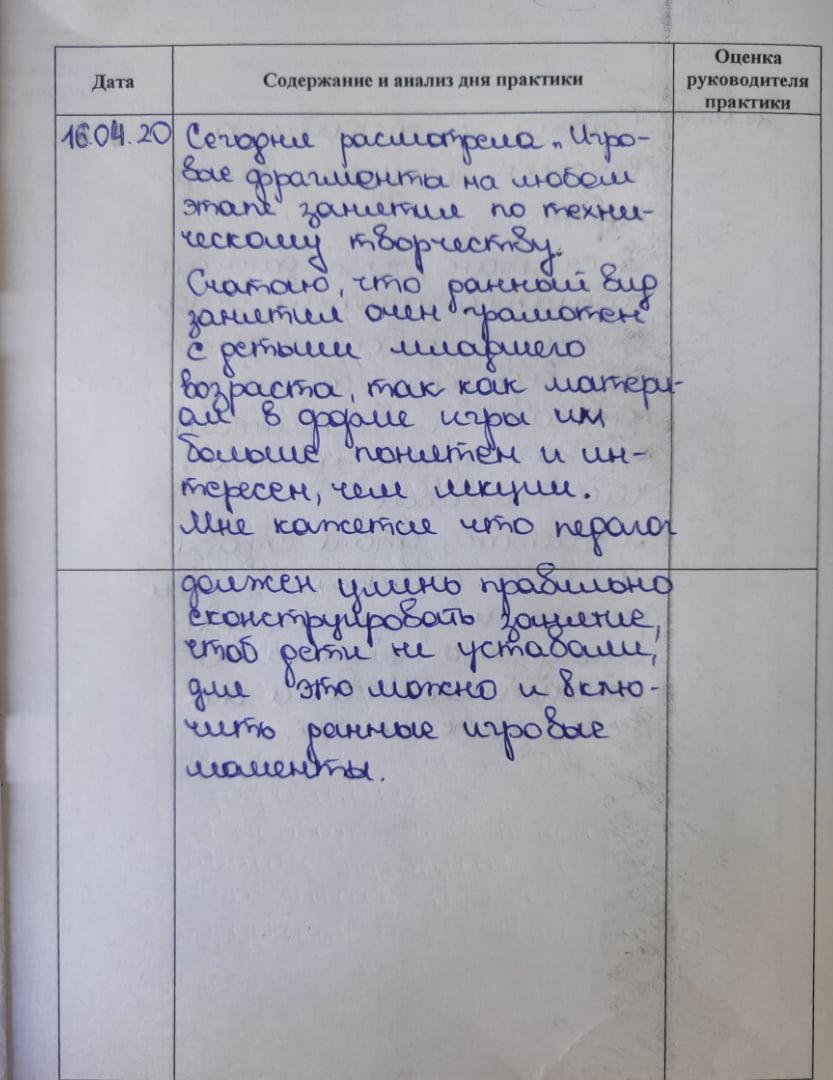 Дата
Содержание и анализ дня практики
Оценка
руководителя
практики
16.04.20
Сегодня расмотрела „Игро-
вые фрагменты на любом
этапе занятия по техни-
ческому творчеству.
Считаю, что данный вид
занятия очен грамотен
с детьми младшего
возраста, так как матери-
ал в форме игры им
больше понятен и ин-
тересен, чем лекции.
Мне кажется что педагог
должен умень правильно
сконструировать занятие,
чтоб дети не уставали,
для это можно и вклю-
чить данные игровые
моменты.